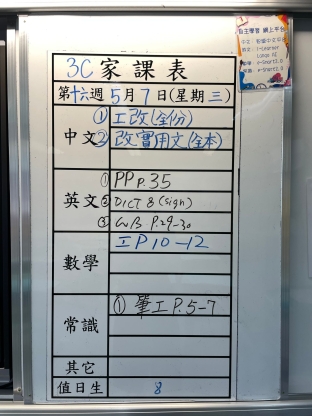 3C 家課表
第十六週 5月7日(星期三)
中文
① 工改(全份)
② 改實用文(全本)
英文
① PP P.35
② DICT 8 (sign)
③ GWB P.29-30
數學
工P10-12
常識
① 筆工 P.5-7
其它
值日生
8
自主學習 網上平台